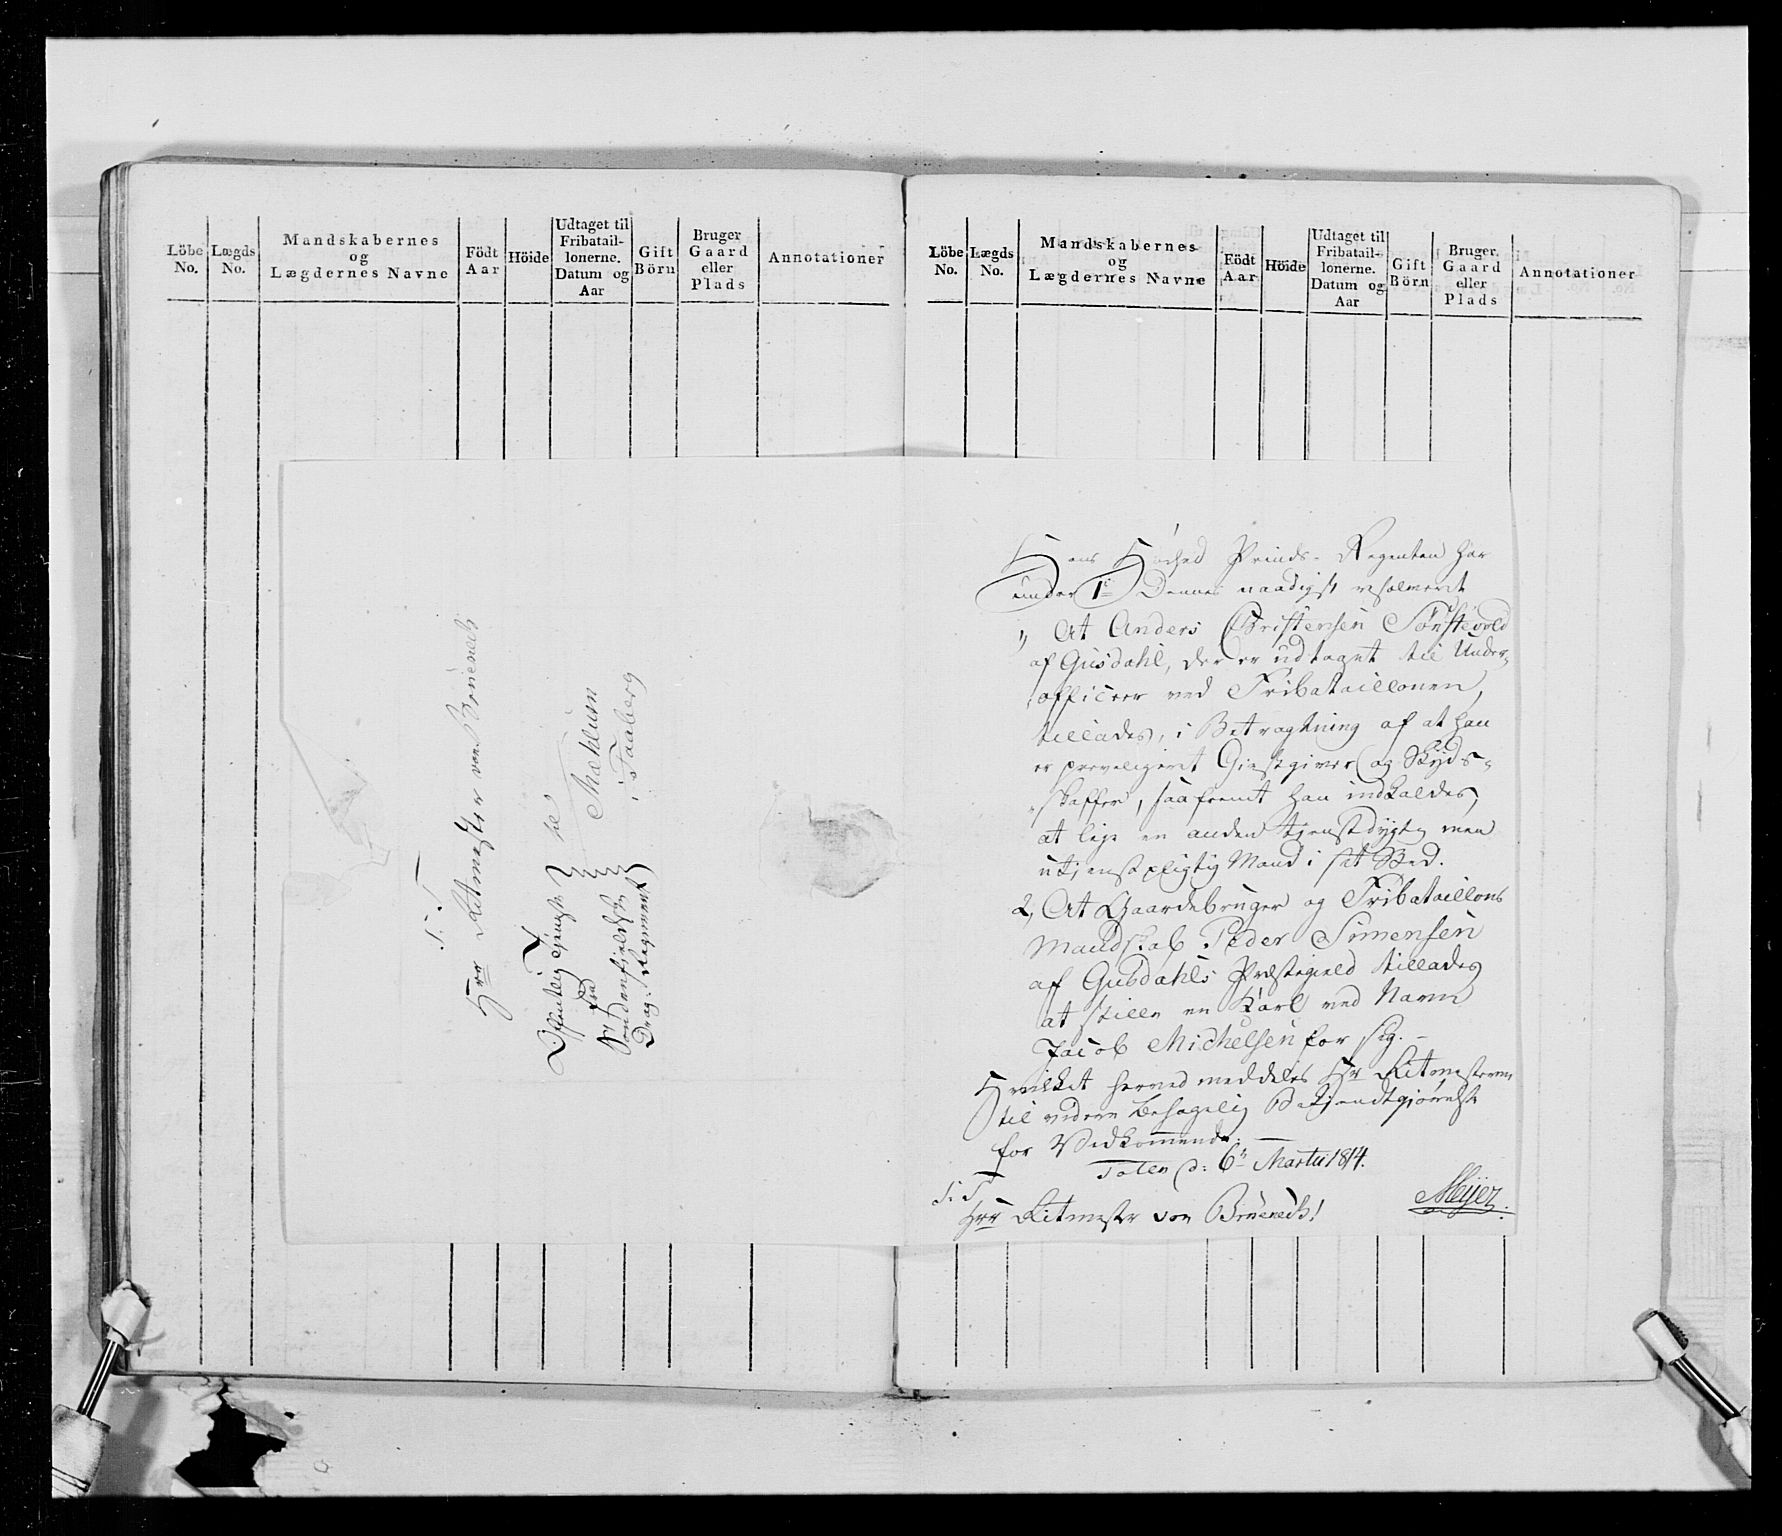 Löbe No.
Lægds No.
Mandskabernes og Lægdernes Navne
Födt Aar
Höide
Udtaget til Fribatail-lonerne. Datum og Aar
Gift Börn
Bruger Gaard eller Plads
Annotationer
T: T
Hrr Ritmester von Brueneck
Offentlig Tjeneste til
fra
Søndenfieldske
Drag: Regiment
Mæhlum
i Faaberg
Löbe No.
Lægds No.
Mandskabernes og Lægdernes Navne
Födt Aar
Höide
Udtaget til Fribatail-lonerne. Datum og Aar
Gift Börn
Bruger. Gaard eller Plads
Annotationer
Hans Höihed Prinds-Regenten har
under 1e Dennes naadigst resolveret
1, At Anders Christensen Sönstevold
af Gusdahl, der er udtaget til Under-
officeer ved Fribataillonen,
tillades, i Betragtning af at han
er preveligeret Giestgiver og Skyds-
skaffer, saafremt han indkaldes,
at leje en anden tjenstdygtig men
utjenstpligtig Mand i sit Sted.
2, At Gaardebruger og Fribataillons
Mandskab Peder Simensen
af Gusdahls Præstegield tillades
at stille en Karl ved Navn
Jacob Michelsen for sig. -
Hvilket herved meddeles Hr Ritmesteren
til videre behagelig Bekjendtgjörelse
for Vedkommende. -
Toten d: 6te Martii 1814.
Meijer.
T: T
Hrr Ritmester von Brueneck!